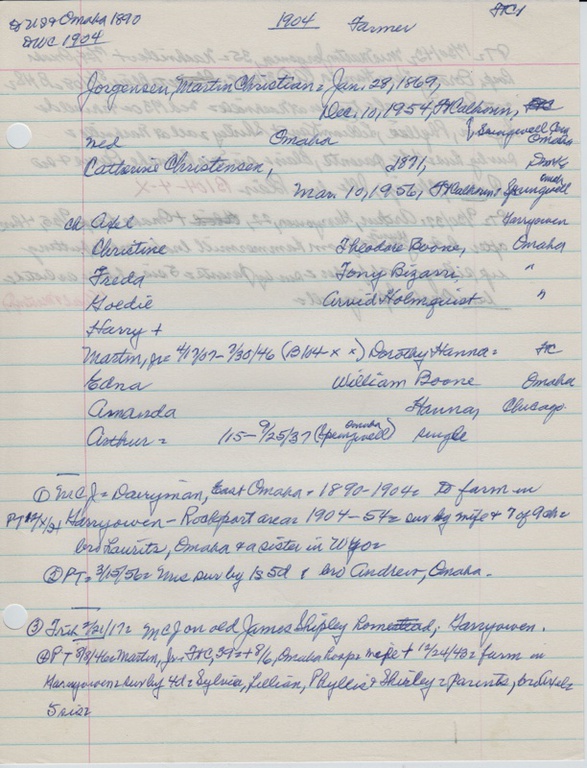 US + Omaha 1890
WC 1904
1904
Farmer
FC1
Jorgensen, Martin Christian = Jan. 28, 1869,
Dec. 10, 1954, Ft Calhoun,
& Springwell Cem
Omaha
md Omaha
Catherine Christensen, 1871,
Mar. 10, 1956, Ft Calhoun = Springwell
Omaha
ch Axel Harryowen
Christine Theodore Boone, Omaha
Freda Tony Bizarri, "
Goedie Arvid Holmquist "
Harry +
Martin, Jr = 4/17/07 - 7/30/46 (B104 x x) Dorothy Hanna = FC
Edna William Boone Omaha
Amanda Hanna, Chicago
Arthur = 1/15 - 9/25/37 (Springwell) single
Omaha
① MCJ = Dairyman, East Omaha = 1890-1904 = to farm in
Harryowen - Rockport area = 1904-54 = sur by wife + 7 of 9 ch =
bro Lauritz, Omaha + a sister in Wyo =
② PT = 3/15/56 = Mrs sur by 1s 5d & bro Andrew, Omaha.
③ Trib 2/21/17 = MCJ on old James Shipley homestead, Harryowen.
④ PT 8/8/46 = Martin, Jr = FC, 39 = + 8/6, Omaha hosp = wife + 12/24/43 = farm in
Harryowen = sur by 4d = Sylvia, Lillian, Phyllis & Shirley = parents, bro Axel =
5 sis =